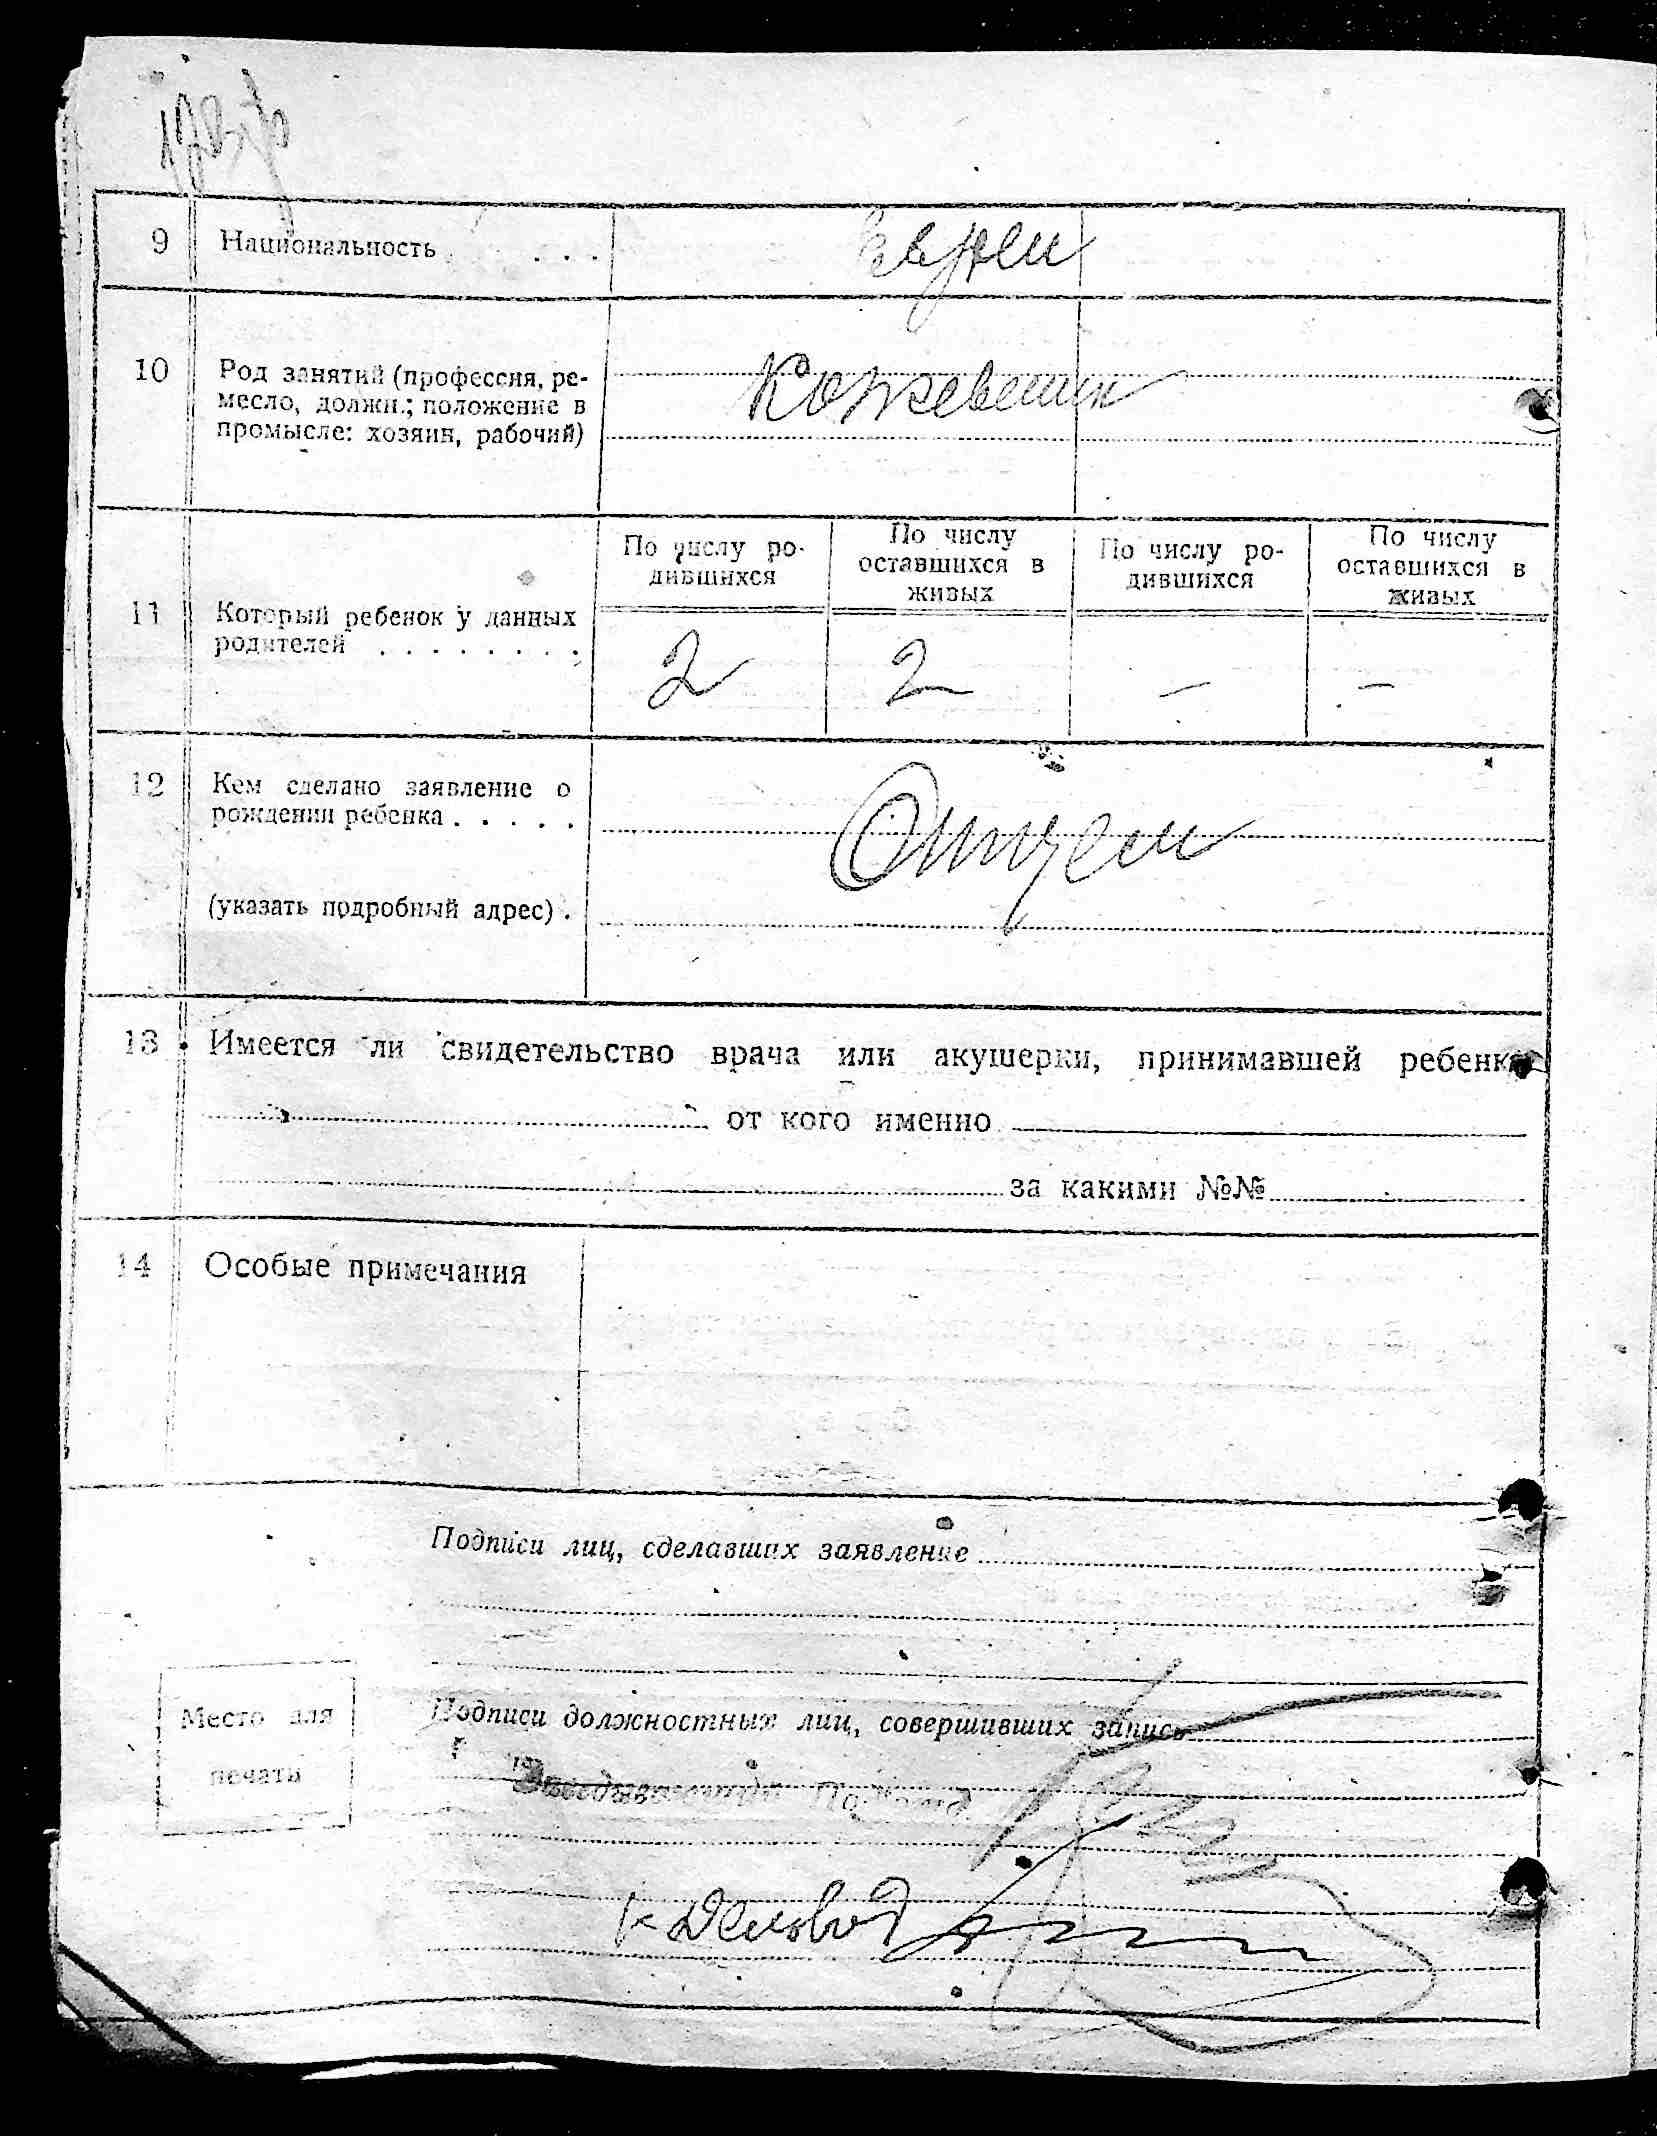 9 Национальность . . . Евреи
10 Род занятий (профессия, ре-
месло, должн.; положение в
промысле: хозяин, рабочий)
Кожевенник
По числу ро-
дившихся
По числу
оставшихся в
живых
По числу ро-
дившихся
По числу
оставшихся в
живых
11 Который ребенок у данных
родителей . . . . . . . .
2 2 — —
12 Кем сделано заявление о
рождении ребенка . . . . .
Отцем
(указать подробный адрес) .
13 Имеется ли свидетельство врача или акушерки, принимавшей ребенка
от кого именно
за какими №№
14 Особые примечания
Подписи лиц, сделавших заявление
Место для
печати
Подписи должностных лиц, совершивших запись
Делопов